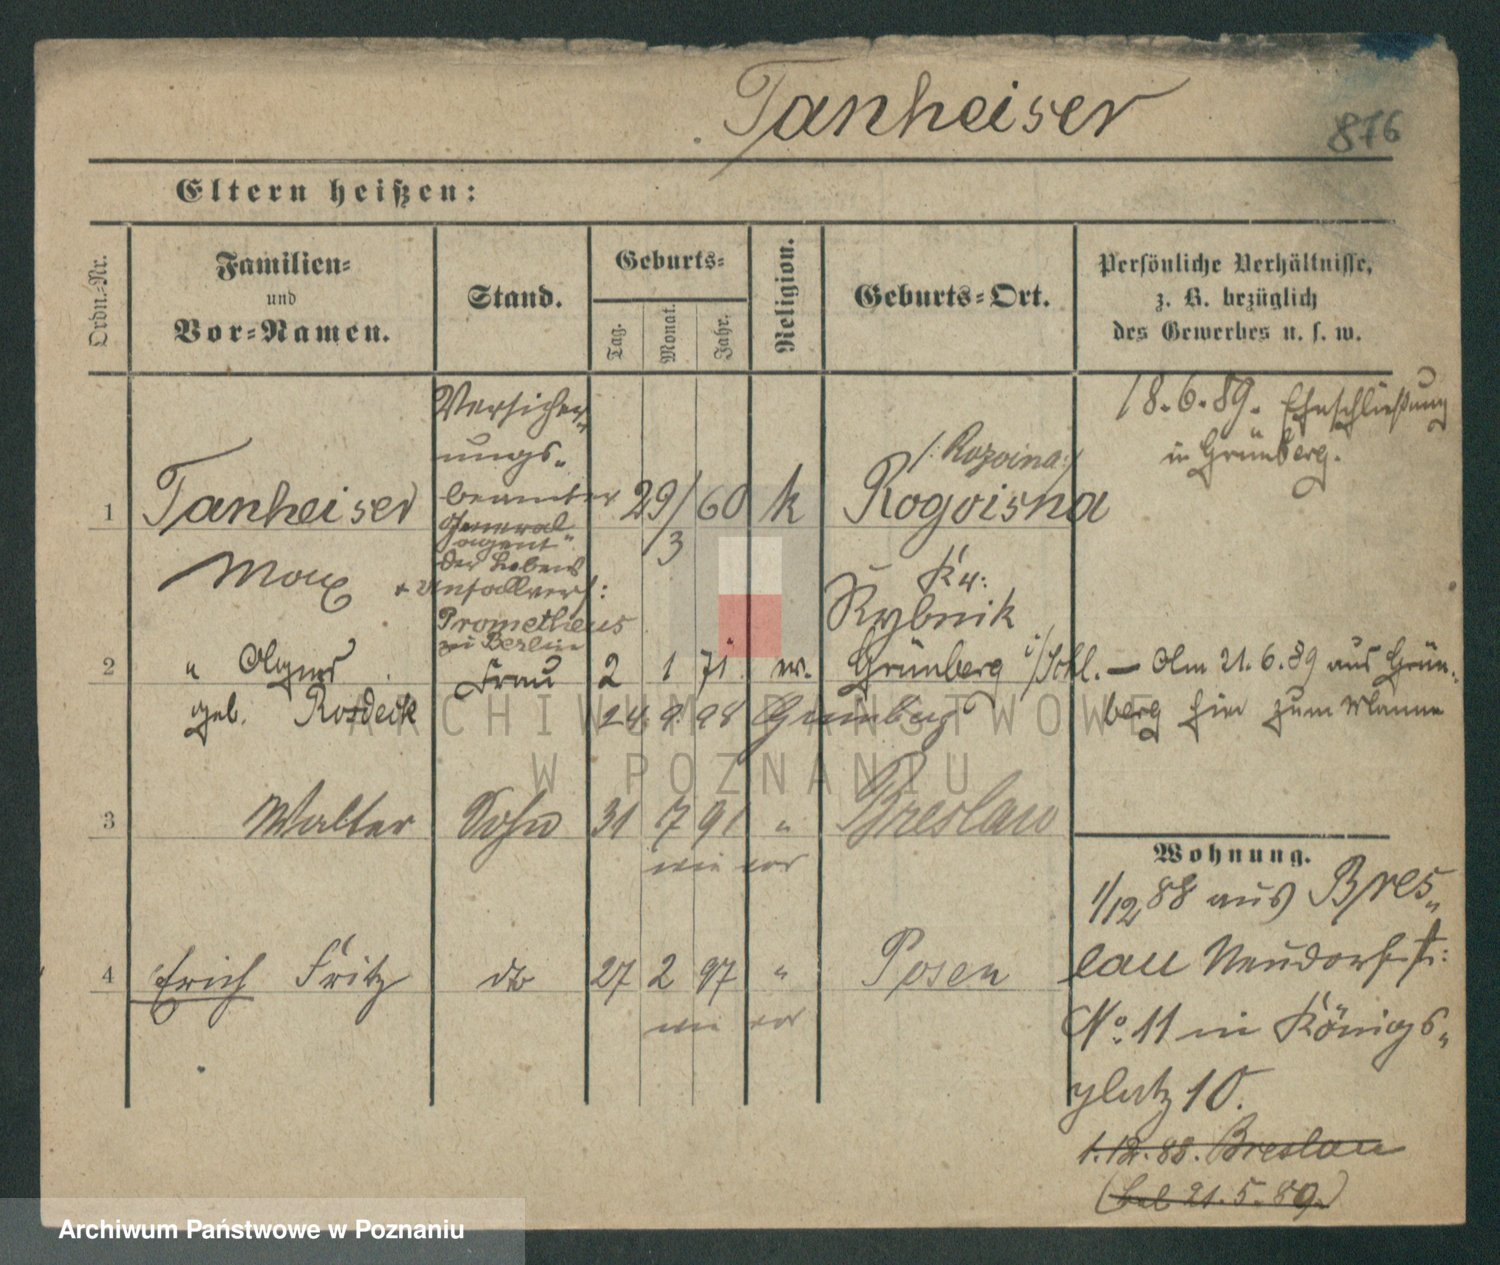 Tanheiser
876
Eltern heißen:
Ordn.-Nr.
Familien-
und
Vor-Namen.
Stand.
Geburts-
Tag.
Monat.
Jahr.
Religion.
Geburts-Ort.
Persönliche Verhältnisse,
z. B. bezüglich
des Gewerbes u. s. w.
18.6.89. Eheschließung
in Grünberg.
Versicher-
ungs-
beamter
General
agent
der Lebens
+ Unfallvers:
Prometheus
zu Berlin
1 Tanheiser 29/3 60 k Rogoisna
/: Rozoina :/
Max
Kr:
Rybnik
2 " Agnes Frau 2 1 71 Grünberg i/Schl. — Am 21.6.89 aus Grün-
geb. Rosdeck 24. 9. 98 Grünberg berg hier zum Manne
3 Walter Sohn 31 7 91 " Breslau
wie vor
Wohnung.
1/12 88 aus Bres-
lau Neudorfstr:
No. 11 in Königs-
platz 10.
1.12.88. Breslau
(bei 21.5.89.)
4 Erich Fritz do 27 2 97 " Posen
wie vor
ARCHIWUM PAŃSTWOWE
W POZNANIU
Archiwum Państwowe w Poznaniu